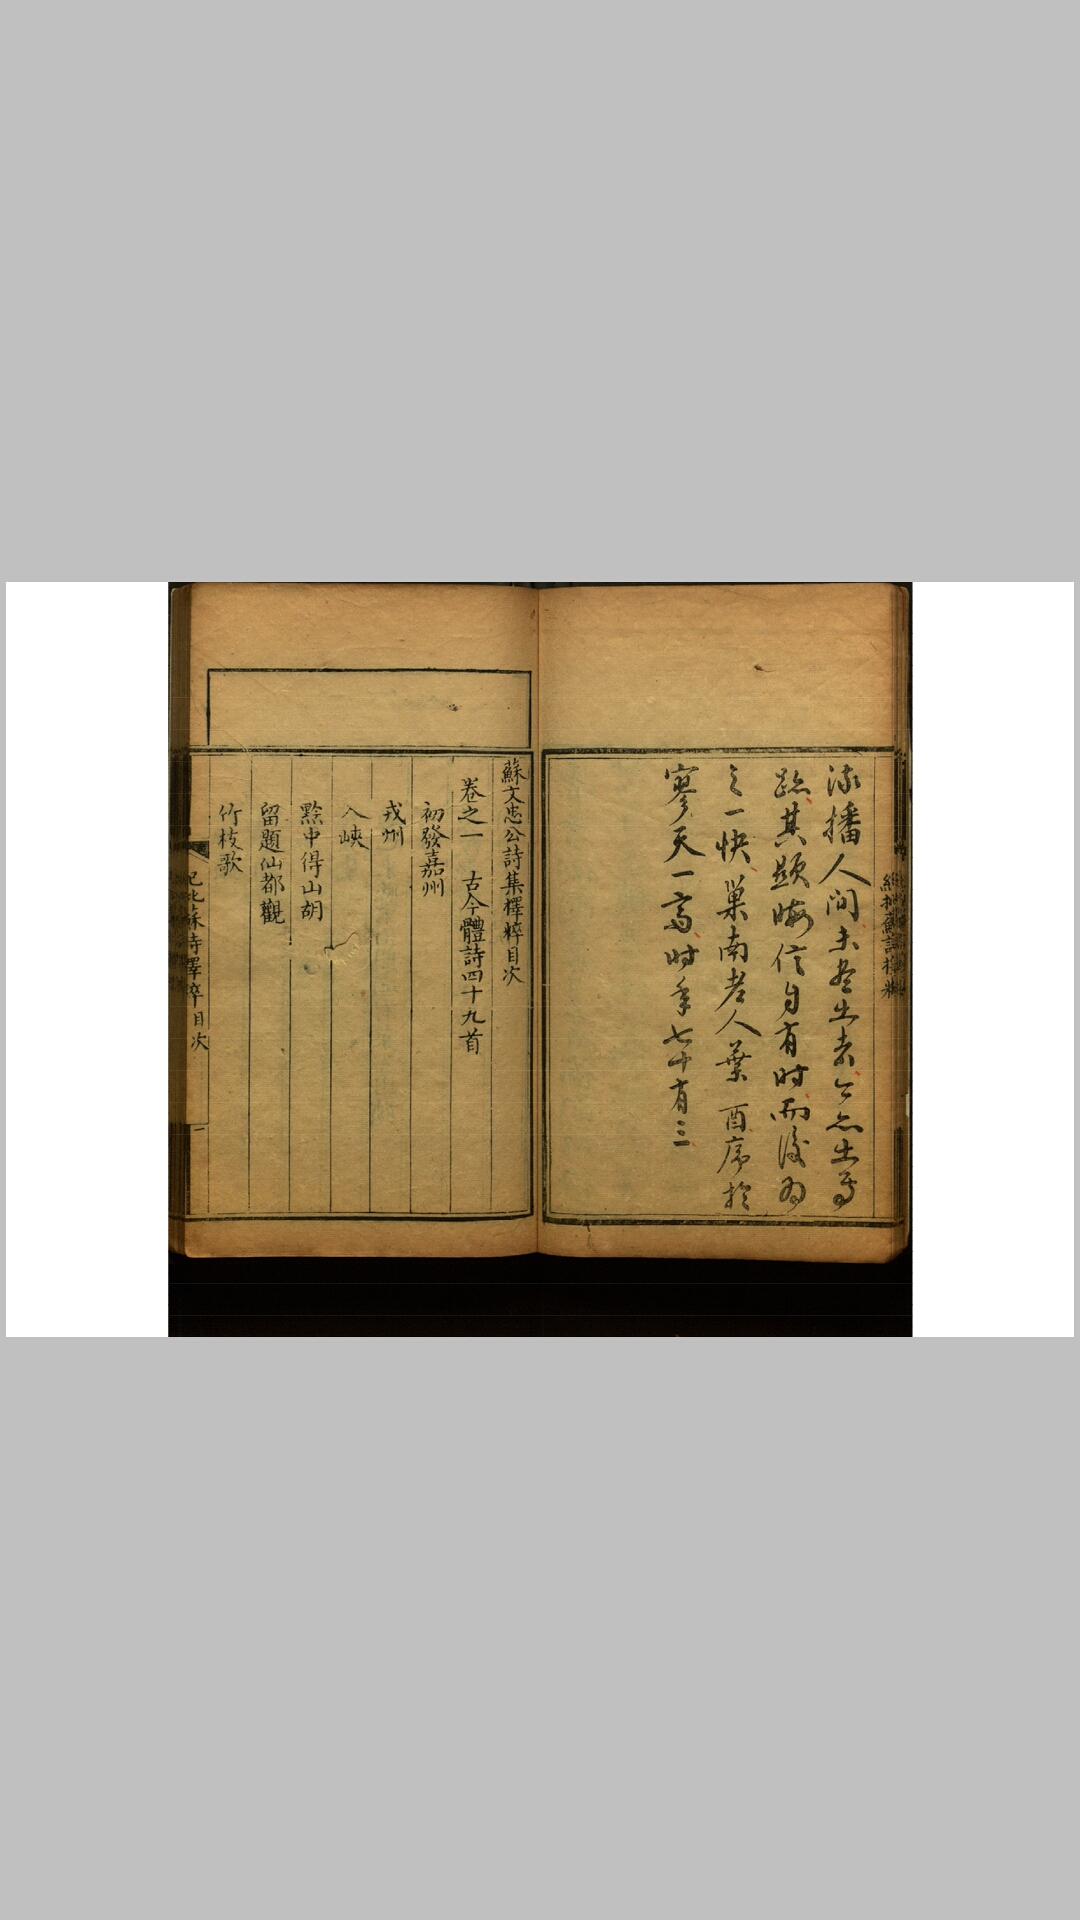 流播人間未盡出者今亦出焉
跡其顯晦信自有時而後為
之一快巢南老人葉 酉序於
寥天一齋時年七十有三
蘇文忠公詩集擇粹目次
卷之一 古今體詩四十九首
初發嘉州
戎州
入峽
黔中得山胡
留題仙都觀
竹枝歌
紀批蘇詩擇粹 目次 一